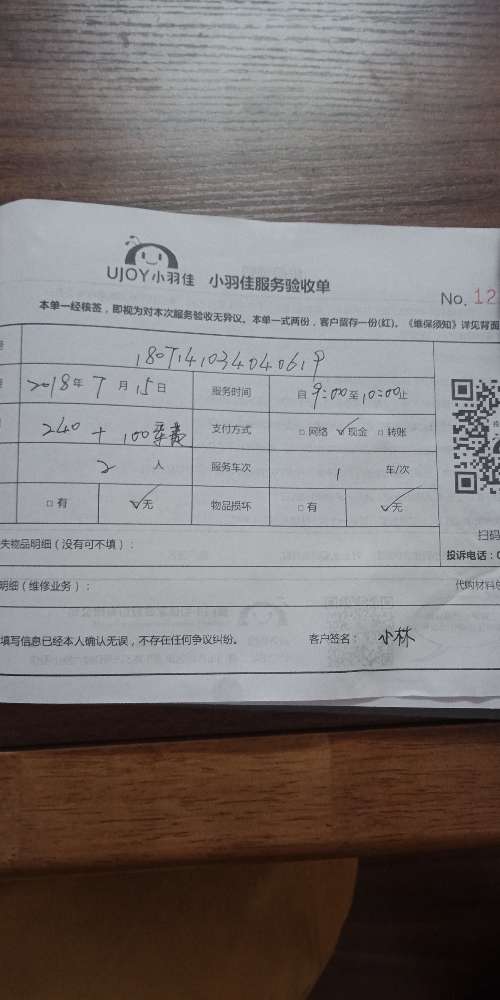 UJOY小羽佳 小羽佳服务验收单
No. 12
本单一经核签，即视为对本次服务验收无异议。本单一式两份，客户留存一份(红)。《维保须知》详见背面
2018年 7 月 15 日 服务时间 自 9:00 至 10:00 止
240 + 100 支付方式 □网络 ☑现金 □转账
2 人 服务车次 1 车/次
□有 ☑无 物品损坏 □有 ☑无
扫码
失物品明细（没有可不填）：
投诉电话：0
明细（维修业务）：
代购材料
填写信息已经本人确认无误，不存在任何争议纠纷。 客户签名： 小林